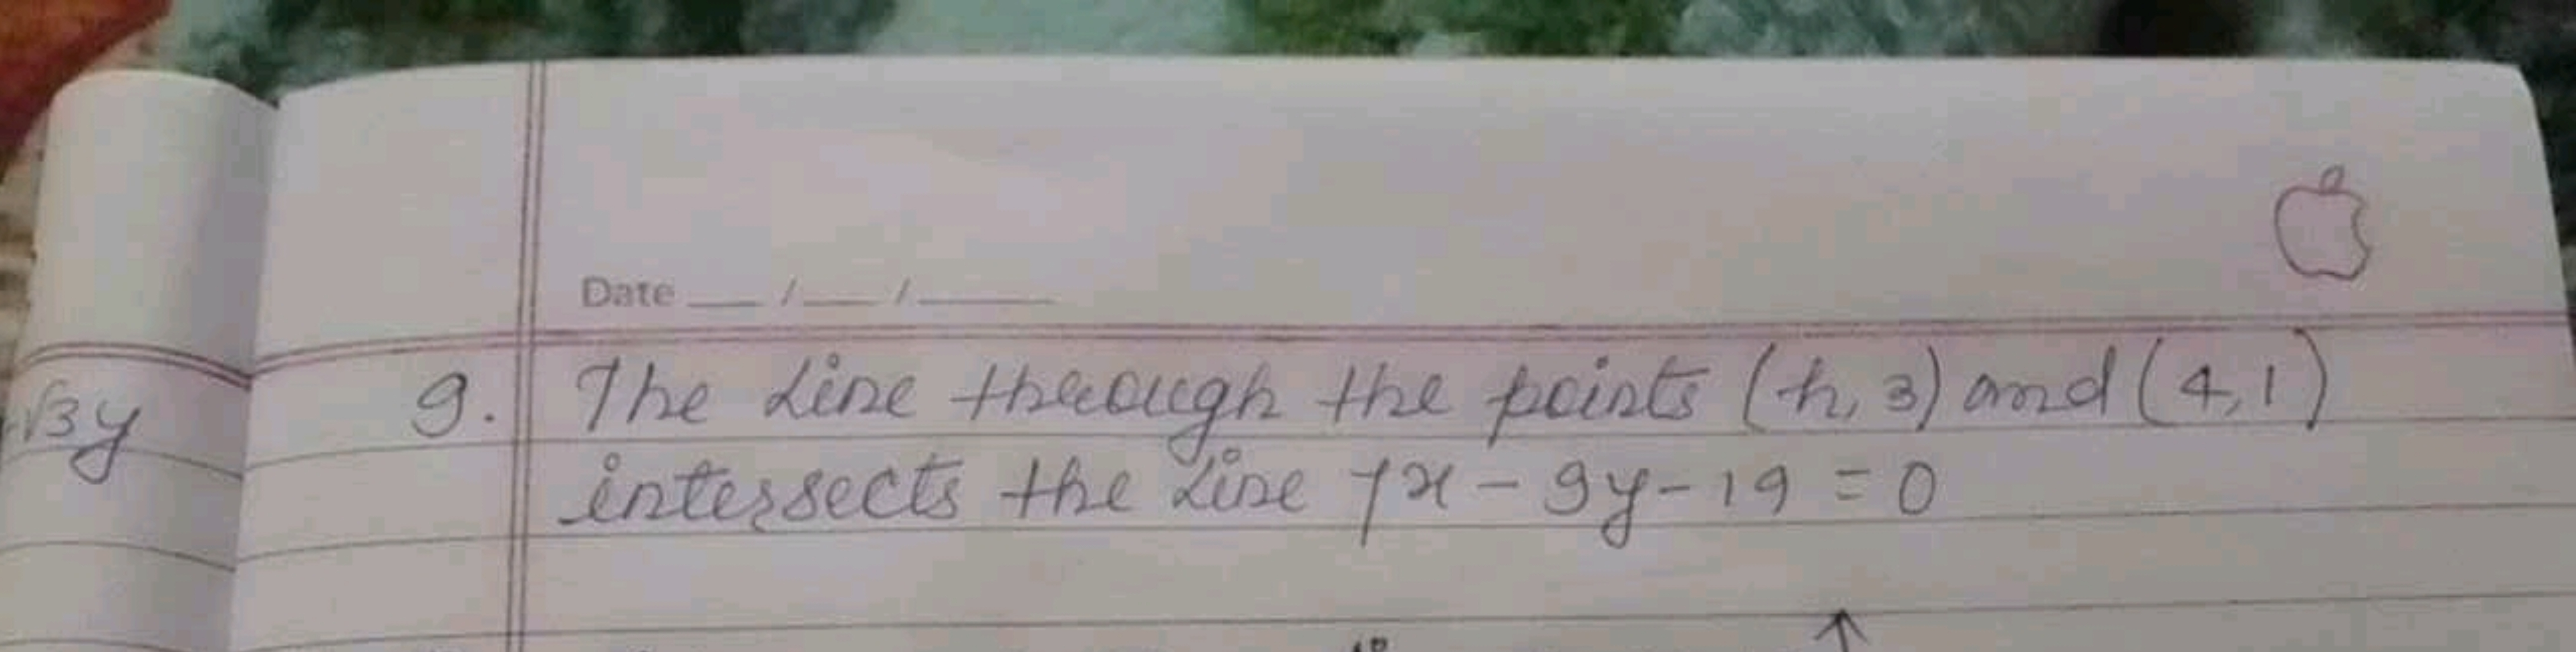 Date __/__/____
9. The Line through the points (h, 3) and (4,1)
√3y
intersects the Line 7x - 9y - 19 = 0